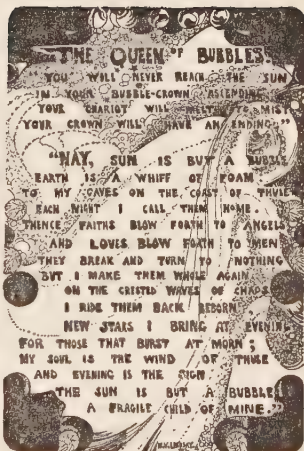 THE QUEEN OF BUBBLES.
"YOU WILL NEVER REACH THE SUN
IN YOUR BUBBLE-CROWN ASCENDING
YOUR CHARIOT WILL MELT TO MIST
YOUR CROWN WILL HAVE AN ENDING."
"NAY, SUN IS BUT A BUBBLE
EARTH IS A WHIFF OF FOAM
TO MY CAVES ON THE COAST OF THULE
EACH NIGHT I CALL THEM HOME.
THENCE FAITHS BLOW FORTH TO ANGELS
AND LOVES BLOW FORTH TO MEN
THEY BREAK AND TURN TO NOTHING
BUT I MAKE THEM WHOLE AGAIN
ON THE CRESTED WAVES OF CHAOS
I RIDE THEM BACK REBORN
NEW STARS I BRING AT EVENING
FOR THOSE THAT BURST AT MORN;
MY SOUL IS THE WIND OF THULE
AND EVENING IS THE SIGN.
THE SUN IS BUT A BUBBLE
A FRAGILE CHILD OF MINE."